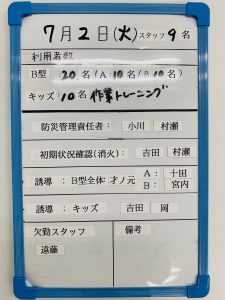 7月2日(火)スタッフ9名
利用者数
B型 :20名 (A 10名 /B 10名)
キッズ:10名 作業トレーニング
防災管理責任者: 小川 村瀬
初期状況確認(消火): 吉田 村瀬
誘導 : B型全体 才ノ元 A: 十田
B: 宮内
誘導 : キッズ 吉田 岡
欠勤スタッフ 備考
遠藤